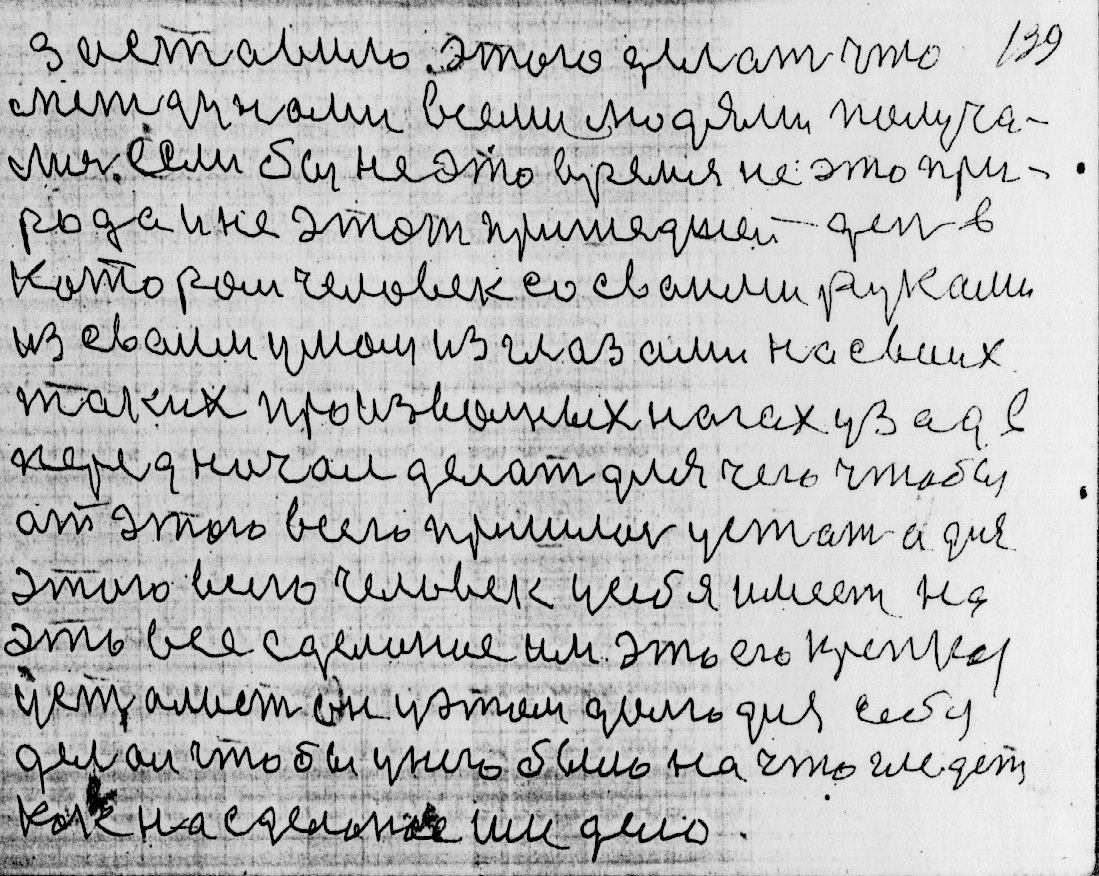 заставило этого делат что 139
между нами всеми людями получа-
лися. Если бы не это время не это при-
рода и не этот пришедшей ден в
котором человек со своими руками
из своим умом из глазами на своих
таких произвольных нагах узад в
перед начал делат для чего чтобы
от этого всего пришлос устат а для
этого всего человек у себя имеет на
это все сделоние им это его крепкая
усталист он у этом долго для себя
делал чтобы у него было на что гледет
как на сделоное им дело.